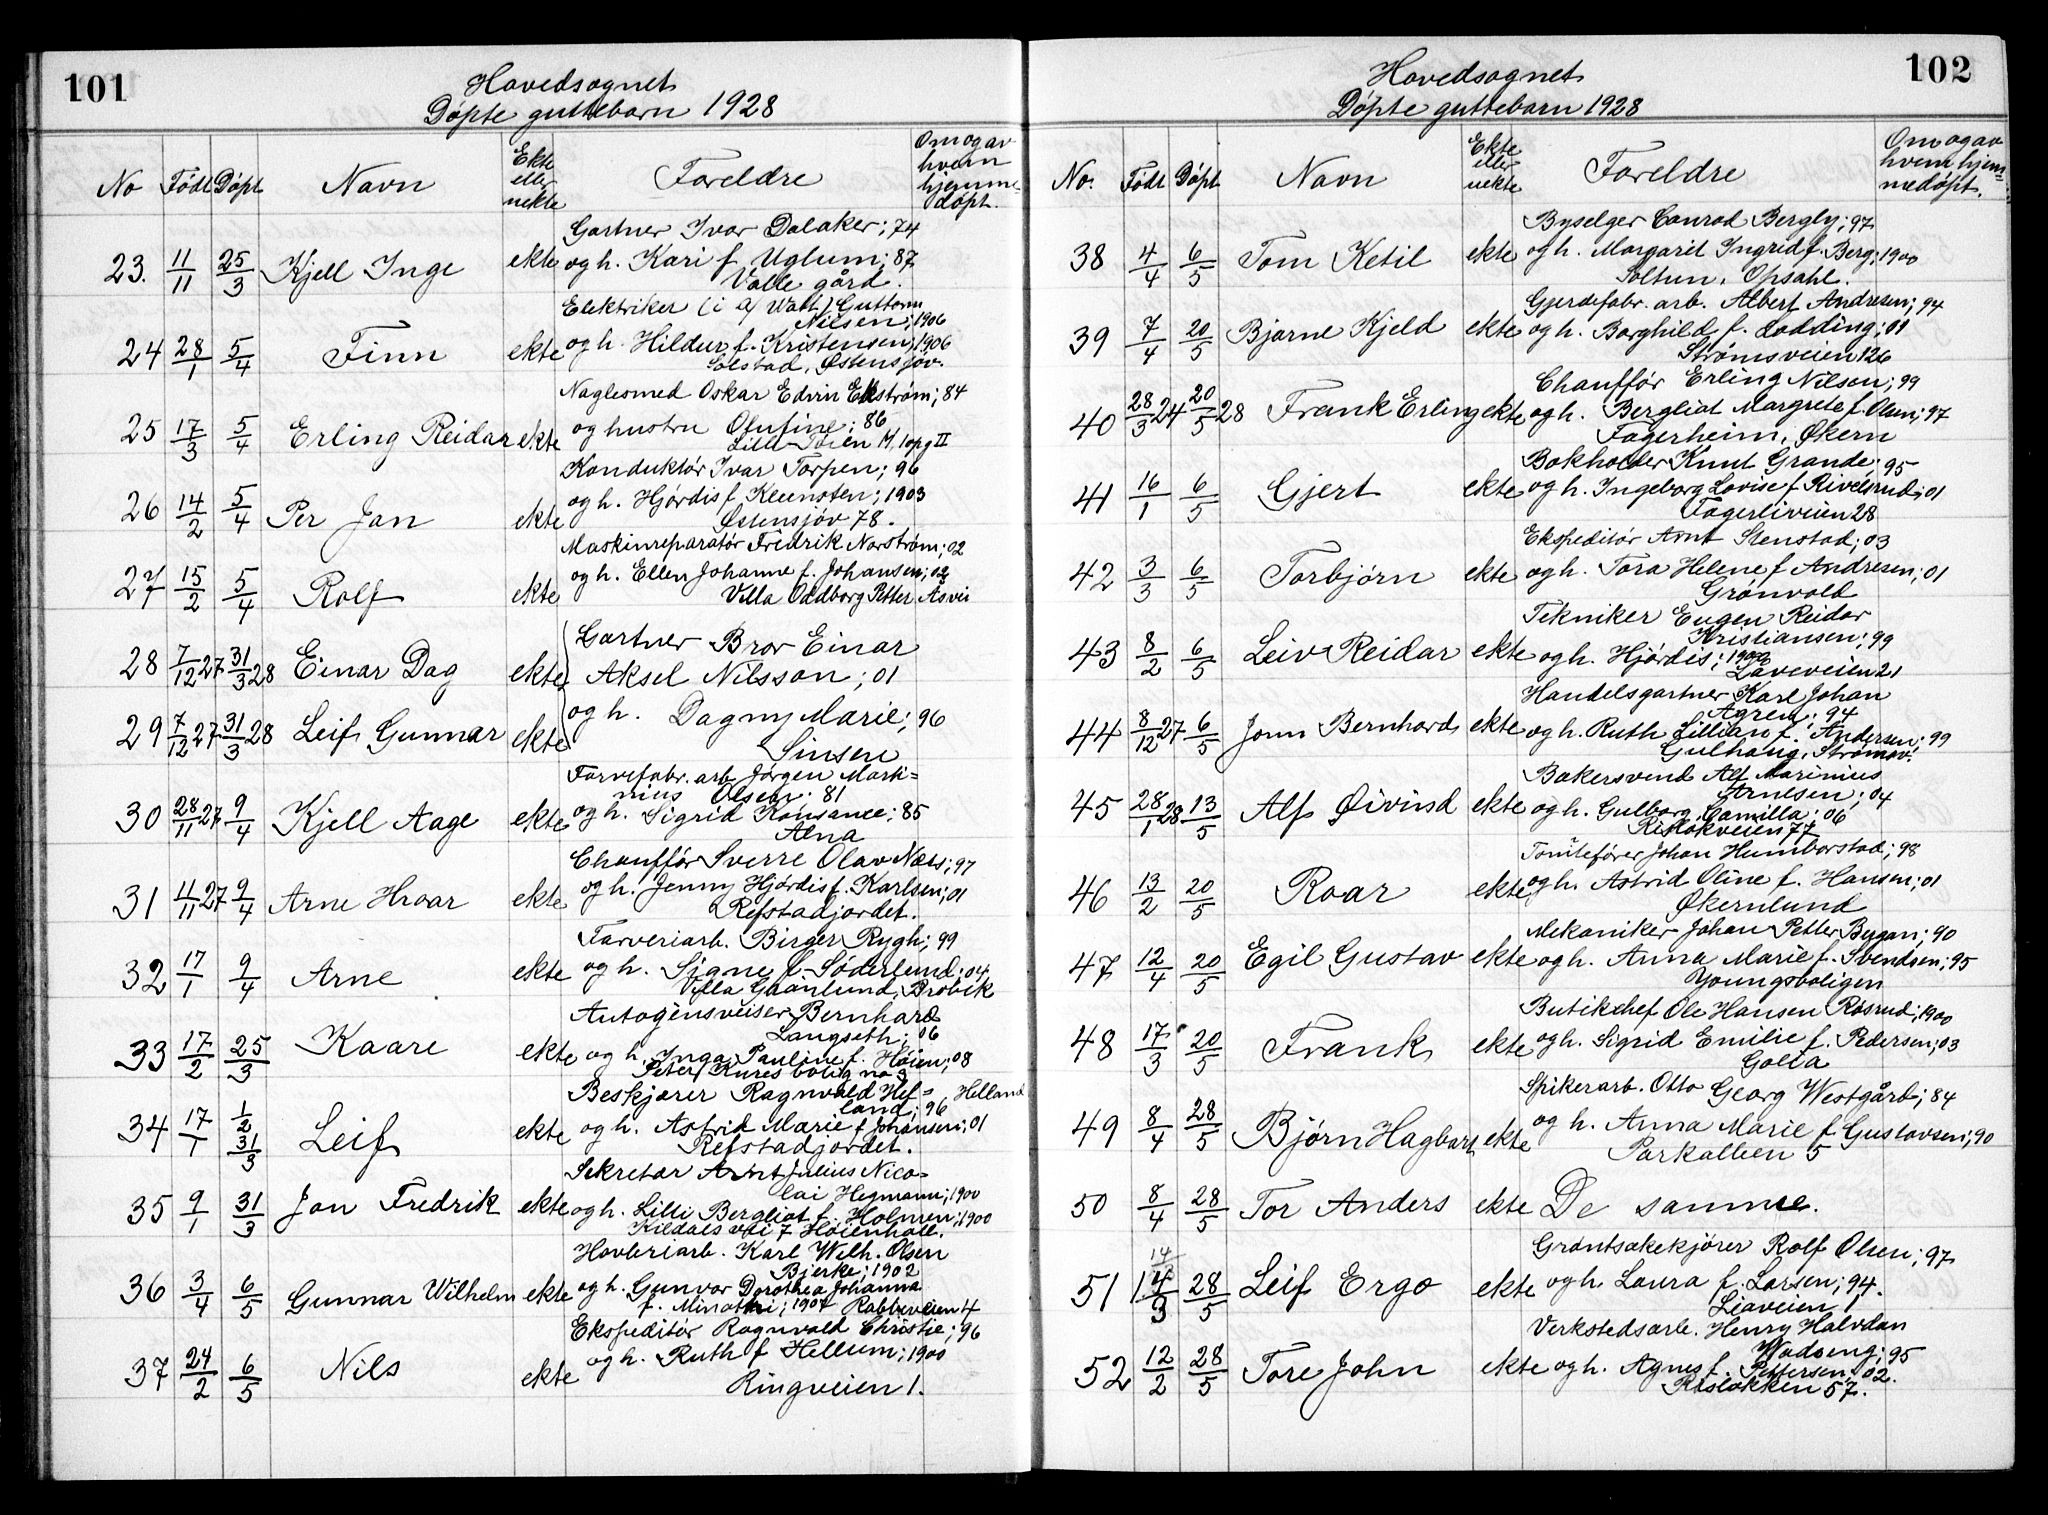 101
Hovedsognet
Døpte guttebarn 1928
No Født Døpt Navn Ekte eller uekte Foreldre Om og av hvem hjemmedøpt.
Gartner Ivar Dalaker; 74
23. 11/11 25/3 Kjell Inge ekte og h. Kari f. Uglum; 87
Valle gård.
Elektriker (i A/ Watt) Guttorm
Nilsen; 1906
24 28/1 5/4 Finn ekte og h. Hildur f. Kristensen; 1906
Solstad, Østensjøv.
Naglesmed Oskar Edvin Ekstrøm; 84
25 17/3 5/4 Erling Reidar ekte og hustru Olufine; 86
Lille Tøien 17, opg II
Konduktør Ivar Torpen; 96
26 14/2 5/4 Per Jan ekte og h. Hjørdis f. ; 1903
Østensjøv 78.
Maskinreparatør Fredrik Norstrøm; 02
27 15/2 5/4 Rolf ekte og h. Ellen Johanne f. Johansen; 02
Villa Oddborg Petter Åsvei
Gartner Bror Einar
28 7/12 27 31/3 28 Einar Dag ekte Aksel Nilsson; 01
29 7/12 27 31/3 28 Leif Gunnar ekte og h. Dagny Marie; 96
Sinsen
Farvefabr. arb. Jørgen Mark=
nius Olsen. 81
30 28/11 27 9/4 Kjell Aage ekte og h. Sigrid Konsance; 85
Alna
Chauffør Sverre Olav Næss; 97
31 4/11 27 9/4 Arne Hroar ekte og h. Jenny Hjørdis f. Karlsen; 01
Refstadjordet.
Farveriarb. Birger Rygh; 99
32 17/1 9/4 Arne ekte og h. Signe f. Söderlund; 04
Villa Granlund, Brobæk
Autogensveiser Bernhard
Langseth; 06
33 17/2 25/3 Kaare ekte og h. Inga Pauline f. Høien; 08
Peter Kures bolig no 3
Beskjærer Ragnvald Hel= Helland
land; 96
34 17/1 1/2 31/3 Leif ekte og h. Astrid Marie f Johansen; 01
Refstadjordet.
Sekretær Arnt Julius Nico=
lai Hegmann; 1900
35 9/1 31/3 Jan Fredrik ekte og h. Lilli Bergliot f. Holmen; 1900
Kildals vei 7 Høienhall.
Høvleriarb. Karl Wilh. Olsen
Bjerke; 1902
36 3/4 6/5 Gunnar Wilhelm ekte og h. Gunvor Dorothea Johanna
f. Minothi; 1907 Rabbeveien 4
Ekspeditør Ragnvald Christie; 96
37 24/2 6/5 Nils ekte og h. Ruth f Hellum; 1900
Ringveien 1.
102
Hovedsognet
Døpte guttebarn 1928
No. Født Døpt Navn Ekte eller uekte Foreldre Om og av hvem hjemmedøpt.
Byselger Conrad Bergly; 97
38 4/4 6/5 Tom Ketil ekte og h. Margarit Ingrid f. Berg; 1900
Soltun, Opsahl.
Gjerdefabr. arb. Albert Andresen; 94
39 7/4 20/5 Bjarne Kjeld ekte og h. Borghild f. Lodding; 01
Strømsveien 126
Chauffør Erling Nilsen; 99
40 28/3 24 20/5 28 Frank Erling ekte og h. Bergliot Margrete f. Olsen; 97
Fagerheim, Økern
Bokholder Knut Grande; 95
41 16/1 6/5 Gjert ekte og h. Ingeborg Lovise f. Rivelsrud; 01
Fagerliveien 28
Ekspeditør Arnt Stenstad; 03
42 3/3 6/5 Torbjørn ekte og h. Tora Helene f Andresen; 01
Grønvold
Tekniker Eugen Reidar
Kristiansen; 99
43 8/2 6/5 Leiv Reidar ekte og h. Hjørdis; 1900
21
Handelsgartner Karl Johan
Ågren; 94
44 8/12 27 6/5 Jonn Bernhard ekte og h. Ruth Lillian f. Andersen; 99
Gulhaug, Strømsv.
Bakersvend Alf Marinius
Arnesen; 04
45 28/1 28 13/5 Alf Øivind ekte og h. Gulborg Camilla; 06
Risløkveien 77
Tomtefører Johan Humborstad; 98
46 13/2 20/5 Roar ekte og h. Astrid Oline f. Hansen; 01
Økernlund
Mekaniker Johan Petter Bergan; 90
47 12/4 20/5 Egil Gustav ekte og h. Anna Marie f. Svendsen; 95
Youngsboligen
Butikchef Ole Hansen Røsrud; 1900
48 17/3 20/5 Frank ekte og h. Sigrid Emilie f. Pedersen; 03
Golia
Spikerarb. Otto Georg Westgård; 84
49 8/4 28/5 Bjørn Hagbart ekte og h. Anna Marie f Gustavsen; 90
Parkalleen 5
50 8/4 28/5 Tor Anders ekte De samme.
Grøntsakekjører Rolf Olsen; 97
51 14/3 28/5 Leif Ergo ekte og h. Laura f. Larsen; 94.
Liaveien 1
Verkstedsarb. Henry Halvdan
Wadseng; 95
52 12/2 28/5 Tore John ekte og h. Agnes f. Pettersen; 02.
Risløkken 57.